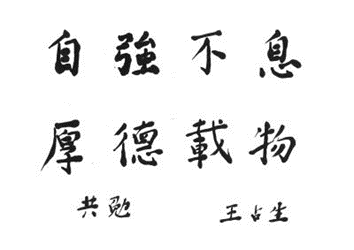 自強不息
厚德載物
共勉 王占生